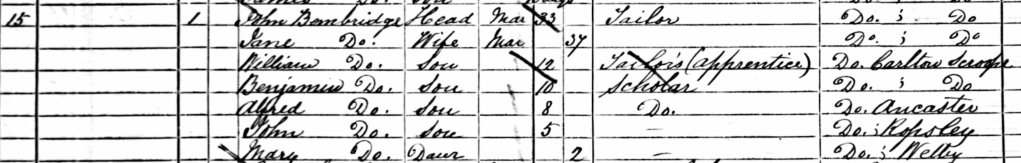 James Do. Son
15 1 John Bembridge Head Mar 33 Tailor Do. ; Do
Jane Do. Wife Mar 37 Do. ; Do
William Do. Son 12 Tailor's (apprentice) Do. Carlton Scroope
Benjamin Do. Son 10 Scholar Do. ; Do
Alfred Do. Son 8 Do. Do. Ancaster
John Do. Son 5 — Do. ; Ropsley
Mary Do. Daur 2 — Do. ; Welby